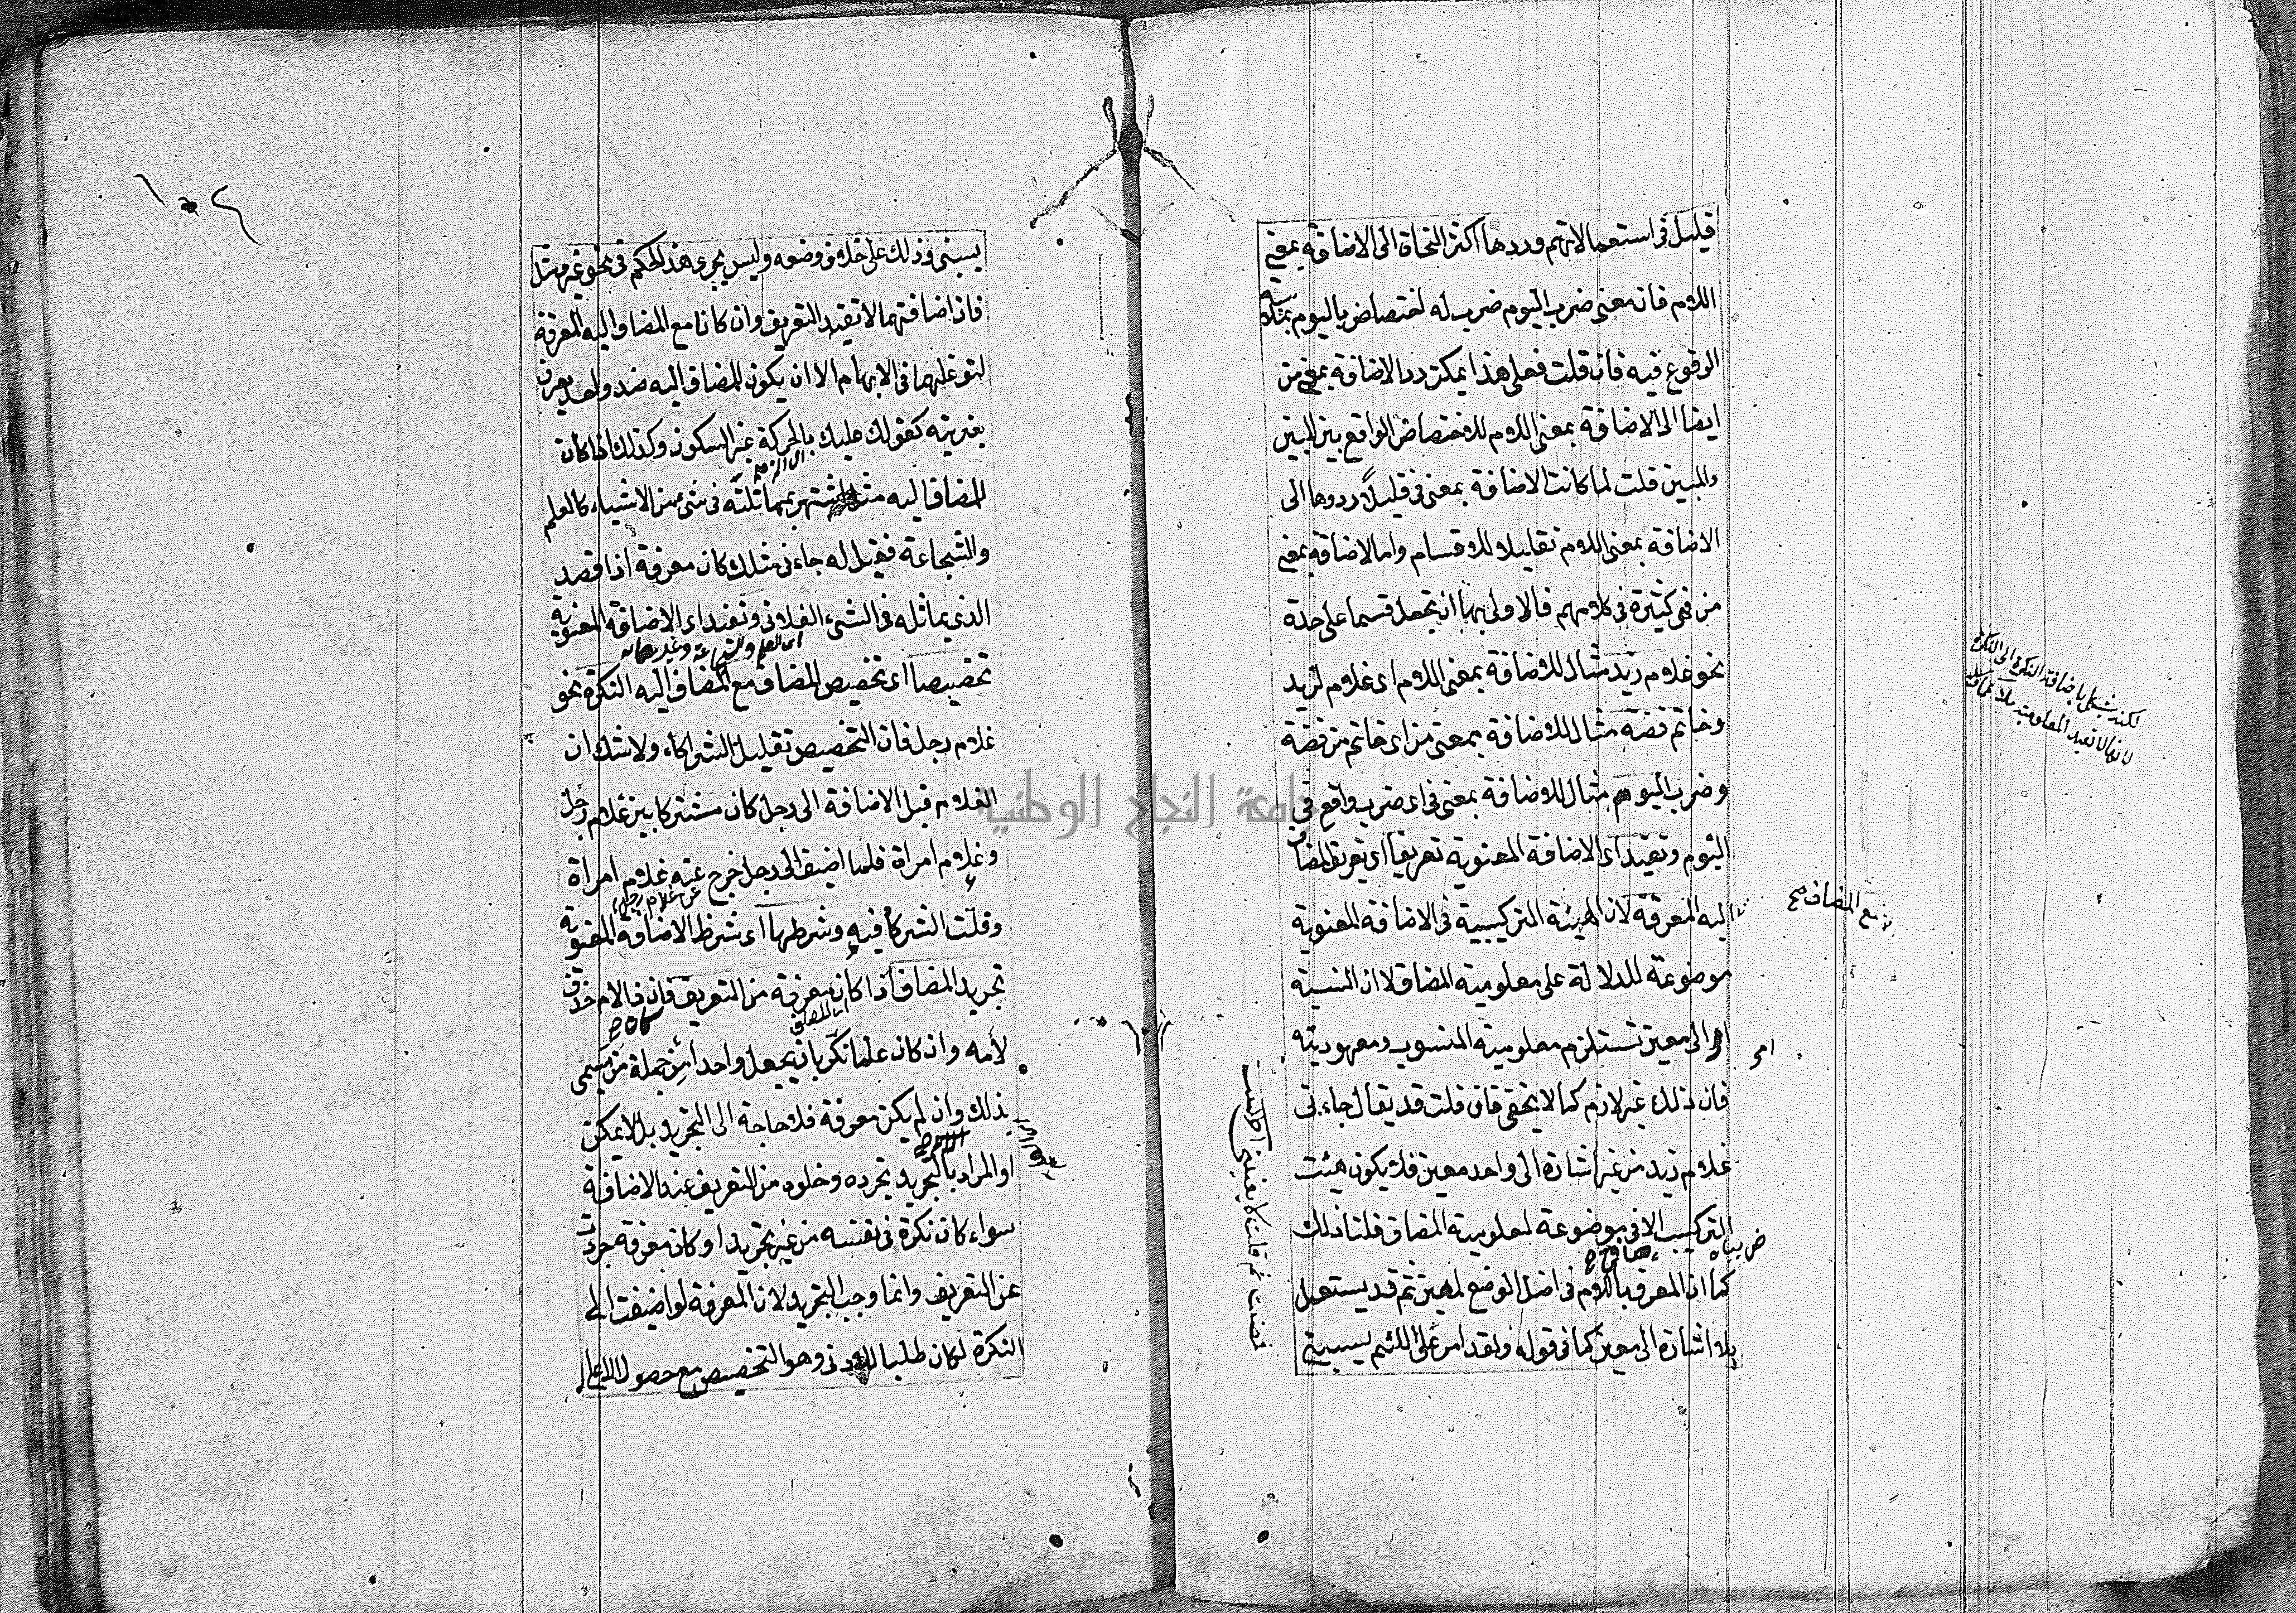 قليل في استعمالاتهم وردها اكثر النحاة الى الاضافة بمعنى
اللام فان معنى ضرب اليوم ضرب له اختصاص باليوم بملابسة
الوقوع فيه فان قلت فعلى هذا يمكن رد الاضافة بمعنى من
ايضا الى الاضافة بمعنى اللام للاختصاص الواقع بين المبين
والمبين قلت لما كانت الاضافة بمعنى في قليلا ردوها الى
الاضافة بمعنى اللام تقليلا للاقسام واما الاضافة بمعنى
من فهى كثيرة في كلامهم فالاولى بها ان تجعل قسما على حدة
نحو غلام زيد مثال للاضافة بمعنى اللام اى غلام لزيد
وخاتم فضة مثال للاضافة بمعنى من اى خاتم من فضة
وضرب اليوم مثال للاضافة بمعنى في اى ضرب واقع في
اليوم وتفيد اى الاضافة المعنوية تعريفا اى تعريف المضاف
اليه المعرفة لان الهيئة التركيبية في الاضافة المعنوية
مع المضاف صح
موضوعة للدلالة على معلومية المضاف لا ان النسبة
امر الى معين تستلزم معلومية المنسوب ومعهوديته
امر
فان ذلك غير لازم كما لا يخفى فان قلت قد يقال جاءنى
غلام زيد من غير اشارة الى واحد معين فلا يكون هيئة
التركيب الاضافي موضوعة لمعلومية المضاف قلنا ذلك
كما ان المعرف باللام في اصل الوضع لمعين ثم قد يستعمل
بلا اشارة الى معين كما في قوله ولقد امر على اللئيم يسبني
يسبني وذلك على خلاف وضعه وليس يجرى هذا الحكم في نحو غير ومثل
فان اضافتهما لا تفيد التعريف وان كانا مع المضاف اليه المعرفة
لتوغلهما في الابهام الا ان يكون للمضاف اليه ضد واحد يعرف
بغيريته كقولك عليك بالحركة غير السكون وكذلك اذا كان
للمضاف اليه مثل اشتهر بمماثلته في شيء من الاشياء كالعلم
والشجاعة فقيل له جاءني مثلك كان معرفة اذا قصد
الذي يماثله في الشيء الفلاني وتفيد اى الاضافة المعنوية
تخصيصا اى تخصيص المضاف مع المضاف اليه النكرة نحو
غلام رجل فان التخصيص تقليل الشركاء ولا شك ان
الغلام قبل الاضافة الى رجل كان مشتركا بين غلام رجل
وغلام امراة فلما اضيف الى رجل خرج عنه غلام امرأة
وقلت الشركاء فيه وشرطها اى شرط الاضافة المعنوية
تجريد المضاف اذا كان معرفة من التعريف فان كان ذا اللام حذف
لامه وان كان علما نكر بان يجعل واحدا من جملة من سمى
بذلك وان لم يكن معرفة فلا حاجة الى التجريد بل لا يمكن
او المراد بالتجريد تجرده وخلوه من التعريف عند الاضافة
سواء كان نكرة في نفسه من غير تجريد او كان معرفة جردت
عن التعريف وانما وجب التجريد لان المعرفة لو اضيفت الى
النكرة لكان طلبا للادنى وهو التخصيص مع حصول الاعلى
جامعة النجاح الوطنية